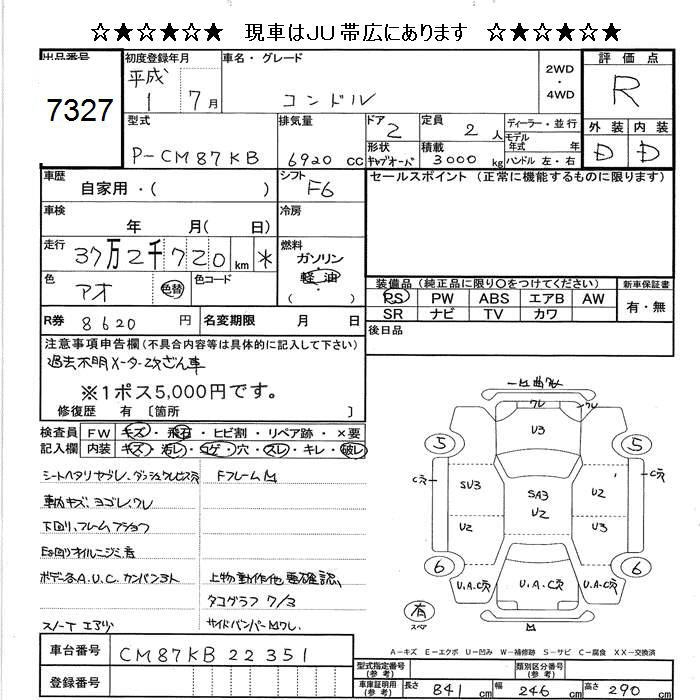 ☆★☆★☆★ 現車はJU帯広にあります ☆★☆★☆★
出品番号 初度登録年月 車名・グレード 2WD ・ 4WD 評価点
7327 平成 1 7月 コンドル R
型式 排気量 ドア 2 定員 2人 ディーラー・並行 外装 内装
P-CM87KB 6920 CC 形状 キャブオーバ 積載 3000 kg モデル年式 年 ハンドル 左・右 D D
車歴 自家用・( ) シフト F6 セールスポイント (正常に機能するものに限ります)
車検 年 月( 日) 冷房
走行 37万2千720 km * 燃料 ガソリン 軽油 ( )
色 アオ 色替 色コード 装備品 (純正品に限り○をつけてください) 新車保証書
PS PW ABS エアB AW 有・無
R券 8620 円 名変期限 月 日 SR ナビ TV カワ
注意事項申告欄 (不具合内容等は具体的に記入して下さい) 後日品
過去不明メーター改ざん車
※1ポス5,000円です。
修復歴 有 〔箇所 〕
検査員 FW キズ・飛石・ヒビ割・リペア跡・×要
記入欄 内装 キズ・汚レ・コゲ・穴・スレ・キレ・破レ
シートヘタリヤブレ、ダッシュクレビス穴 FフレームM
車内キズ、ヨゴレ、ワレ
下回り、フレームフショク
E回りオイルニジミ有
ボデー各A.U.C. カンバン3ト 上物動作他要確認
タコグラフ 7/3
スノーT エアリ サイドバンパーMワレ
ワレ ワレ
U3
5 5
C穴 SU3 SA3 U2 U2 C穴
U2 U3
6 6
U.A.C穴 U.A.C穴 U.A.C穴
有 スペア M
A-キズ E-エクボ U-凹み W-補修跡 S-サビ C-腐食 XX-交換済
車台番号 CM87KB22351
型式指定番号(参考) 類別区分番号(参考)
登録番号 車庫証明用(参考) 長さ 841 cm 幅 246 cm 高さ 290 cm